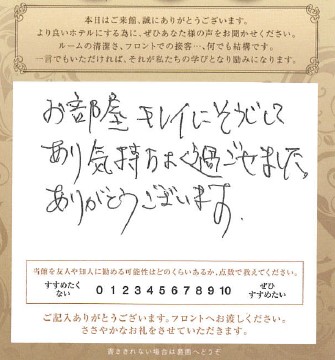 本日はご来館、誠にありがとうございます。
より良いホテルにする為に、ぜひあなた様の声をお聞かせください。
ルームの清潔さ、フロントでの接客…、何でも結構です。
一言でもいただければ、それが私たちの学びとなり励みになります。
お部屋 キレイにそうじして
あり気持ちよく過ごせました。
ありがとうございます。
当館を友人や知人に勧める可能性はどのくらいあるか、点数で教えてください。
すすめたくない 0 1 2 3 4 5 6 7 8 9 10 ぜひすすめたい
ご記入ありがとうございます。フロントへお渡しください。
ささやかなお礼をさせていただきます。
書ききれない場合は裏面へどうぞ